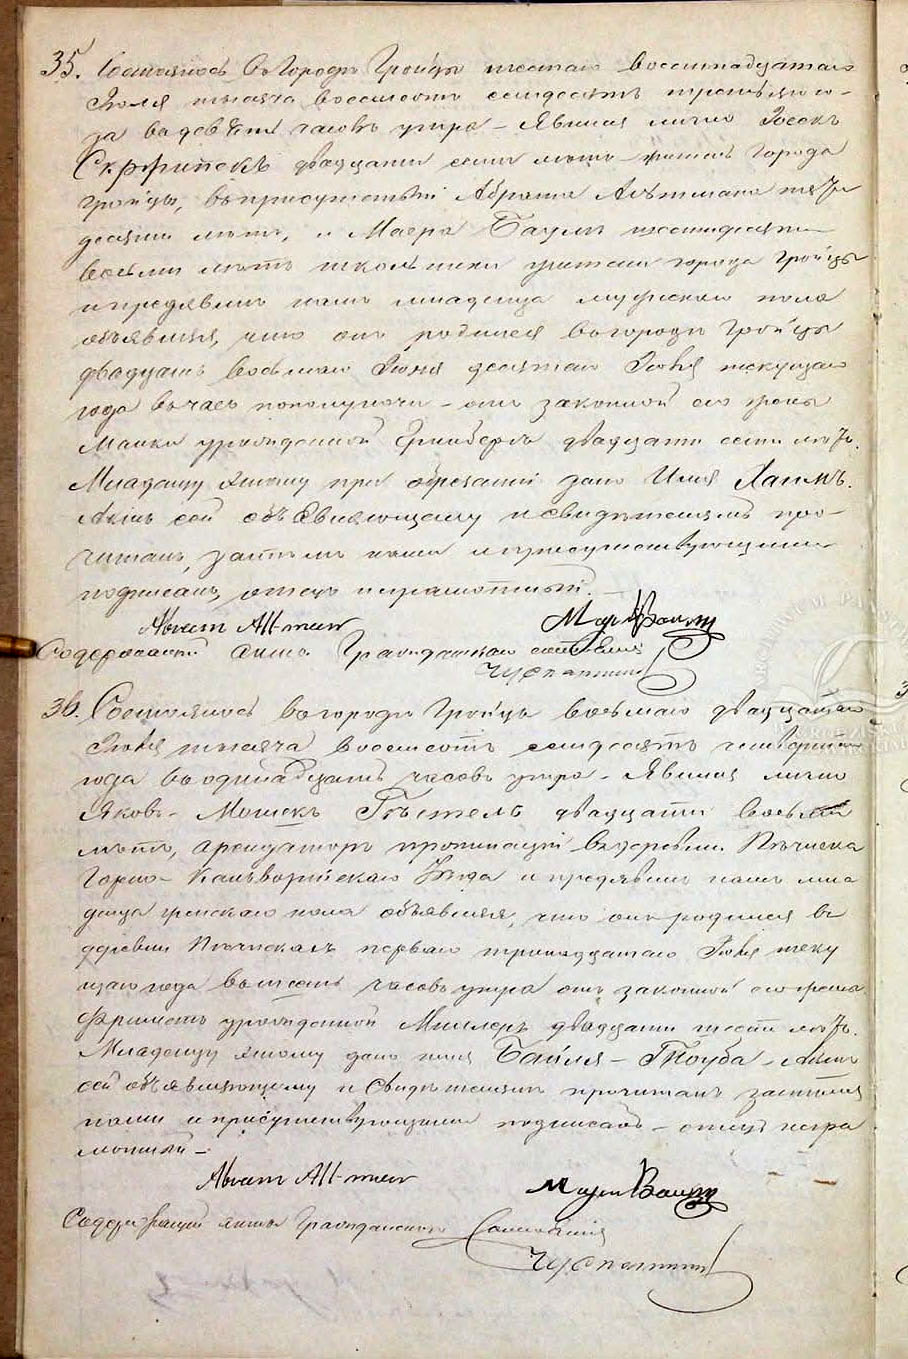 35. Состоялось въ Городѣ Гройцы шестаго восемнадцатаго
Іюля тысяча восемьсотъ семьдесятъ третьяго го-
да въ девять часовъ утра – Явился лично Іосекъ
двадцати семи лѣтъ житель города
Гройцы, въ присутствіи Абрама Альтмана
десяти лѣтъ, и Маера Баумъ шестидесяти
восьми лѣтъ школьники жители города Гройцы
и предъявилъ намъ младенца мужескаго пола
объявляя, что онъ родился въ городѣ Гройцы
двадцать восьмаго Іюня десятаго Іюля текущаго
года въ часъ пополуночи – отъ законной его жены
Малки урожденной Гринбергъ двадцати семи лѣтъ.
Младенцу этому при обрезаніи дано Имя Хаимъ.
Актъ сей объявляющему и свидѣтелямъ про-
читанъ, затѣмъ нами и присутствующими
подписанъ, отецъ неграмотный. –
Abram Altman
Содержащій Акты Гражданскаго состоянія
36. Состоялось въ городѣ Гройцы восьмаго двадцатаго
Іюля тысяча восемьсотъ семьдесятъ
года въ одинадцать часовъ утра – Явился лично
Яковъ – Мошекъ двадцати восьми
лѣтъ, арендаторъ пропинаціи въ деревни
Горно – Кальварійскаго Уѣзда и предъявилъ намъ мла
денца женскаго пола объявляя, что онъ родился въ
деревни перваго тринадцатаго Іюля теку
щаго года въ шесть часовъ утра отъ законной его жены
урожденной Миллеръ двадцати шести лѣтъ.
Младенцу этому дано имя Байля – Тоуба – Актъ
сей объявляющему и Свидѣтелямъ прочитанъ затѣмъ
нами и присутствующими подписанъ – отецъ негра
мотный –
Abram Altman
Содержащій акты Гражданскаго Состоянія